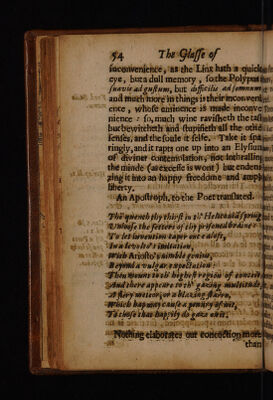 54 The Glasse of
inconvenience, as the Linx hath a quick
eye, but a dull memory, so the Polypus
suavis ad gustum, but difficilis ad somnum
and much more in things is their inconveni
ence, whose eminence is made inconve
nience: so, much wine ravisheth the taste
but bewitcheth and stupifieth all the other
senses, and the soule it selfe. Take it spa
ringly, and it rapts one up into an Elysium
of diviner contemplation, not inthralling
the minde (as excesse is wont) but endeni
zing it into an happy freedome and ample
liberty.
An Apostroph, to the Poet translated.
The quench thy thirst in th' Heliconian spring
Unloose the fetters of thy prisoned braine
To let invention caper once alost,
In a levolto's imitation,
With Ariosto's nimble genius,
Beyond a vulgar expectation:
Then mount to th' highest region of conceit
And there appeare to th' gazing multitude,
A fiery meteor, or a blazing starre,
Which hap may cause a penury of wit,
To those that happily do gaze on it.
Nothing elaborates our concoction more
than